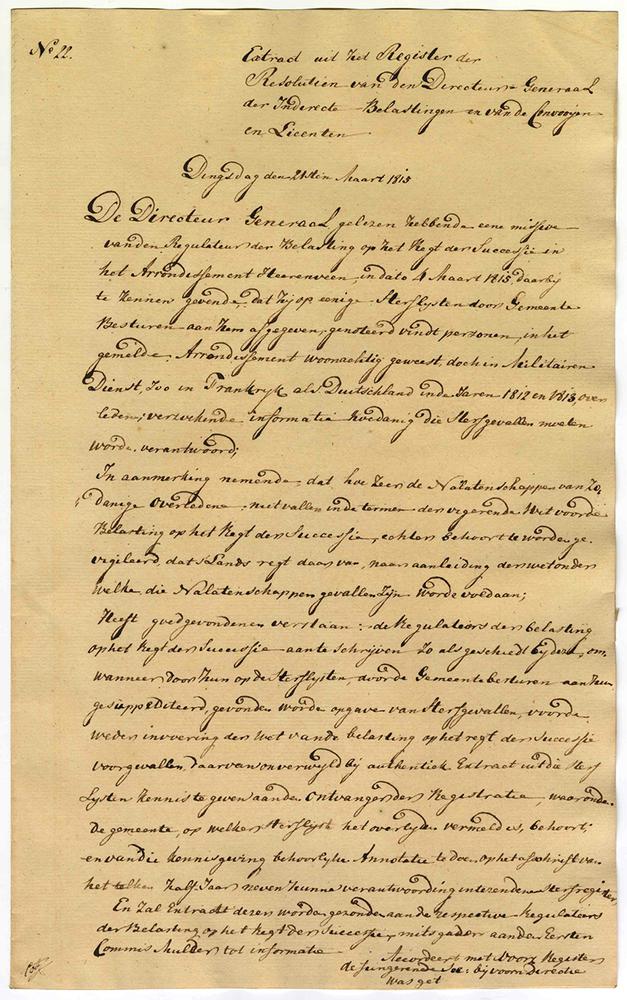 No 22.
Extract uit het Register der
Resolutien van den Directeur Generaal
der Indirecte Belastingen en van de Convooijen
en Licenten
Dingsdag den 21sten Maart 1815
De Directeur Generaal gelezen hebbende eene missive
van den Regulateur der Belasting op het Regt der Successie in
het Arrondissement Heerenveen, in dato 4 Maart 1815, daarbij
te kennen gevende, dat hij op eenige Sterflysten door Gemeente
Besturen aan hem afgegeven, genoteerd vindt personen, in het
gemelde Arrondissement woonachtig geweest, doch in Militairen
Dienst, zoo in Frankryk als Duitschland in de Jaren 1812 en 1813, over
leden; verzoekende informatie hoedanig die sterfgevallen moeten
worde verantwoord;
In aanmerking nemende dat hoe zeer de Nalatenschappen van zo,
danige overledene niet vallen in de termen der vigerende Wet voor de
Belasting op het Regt der Successie, echter behoort te worden ge,
vigileerd, dat 's Lands regt daar van, naar aanleiding der wet onder
welke die Nalatenschappen gevallen zijn worde voldaan;
Heeft goedgevonden en verstaan: de Regulateurs der belasting
op het Regt der Successie aan te schrijven zo als geschiedt bij deze, om
wanneer door hun op de Sterflysten, door de Gemeente besturen aan hun
gesuppediteerd, gevonden worde opgave van Sterfgevallen, voor de
weder invoering der Wet van de belasting op het regt der Successie
voorgevallen, daarvan onverwyld bij authentiek Extract uit die Sterf
Lysten kennis te geven aan den Ontvanger der Registratie, waaronder
de gemeente, op welker Sterflyst het overlyden vermeld is, behoort,
en van die kennisgeving behoorlyke Annotatie te doen op het afschrift van
het telken half Jaar neven hunne verantwoording in te zenden Sterfregister
En zal Extract dezes worden gezonden aan de respective Regulateurs
der Belasting op het Regt der Successie, mitsgaders aan den Eersten
Commis Mulder tot informatie
Accordeert met voorz Register
de fungerende Sec: bij voorn Directie
was get